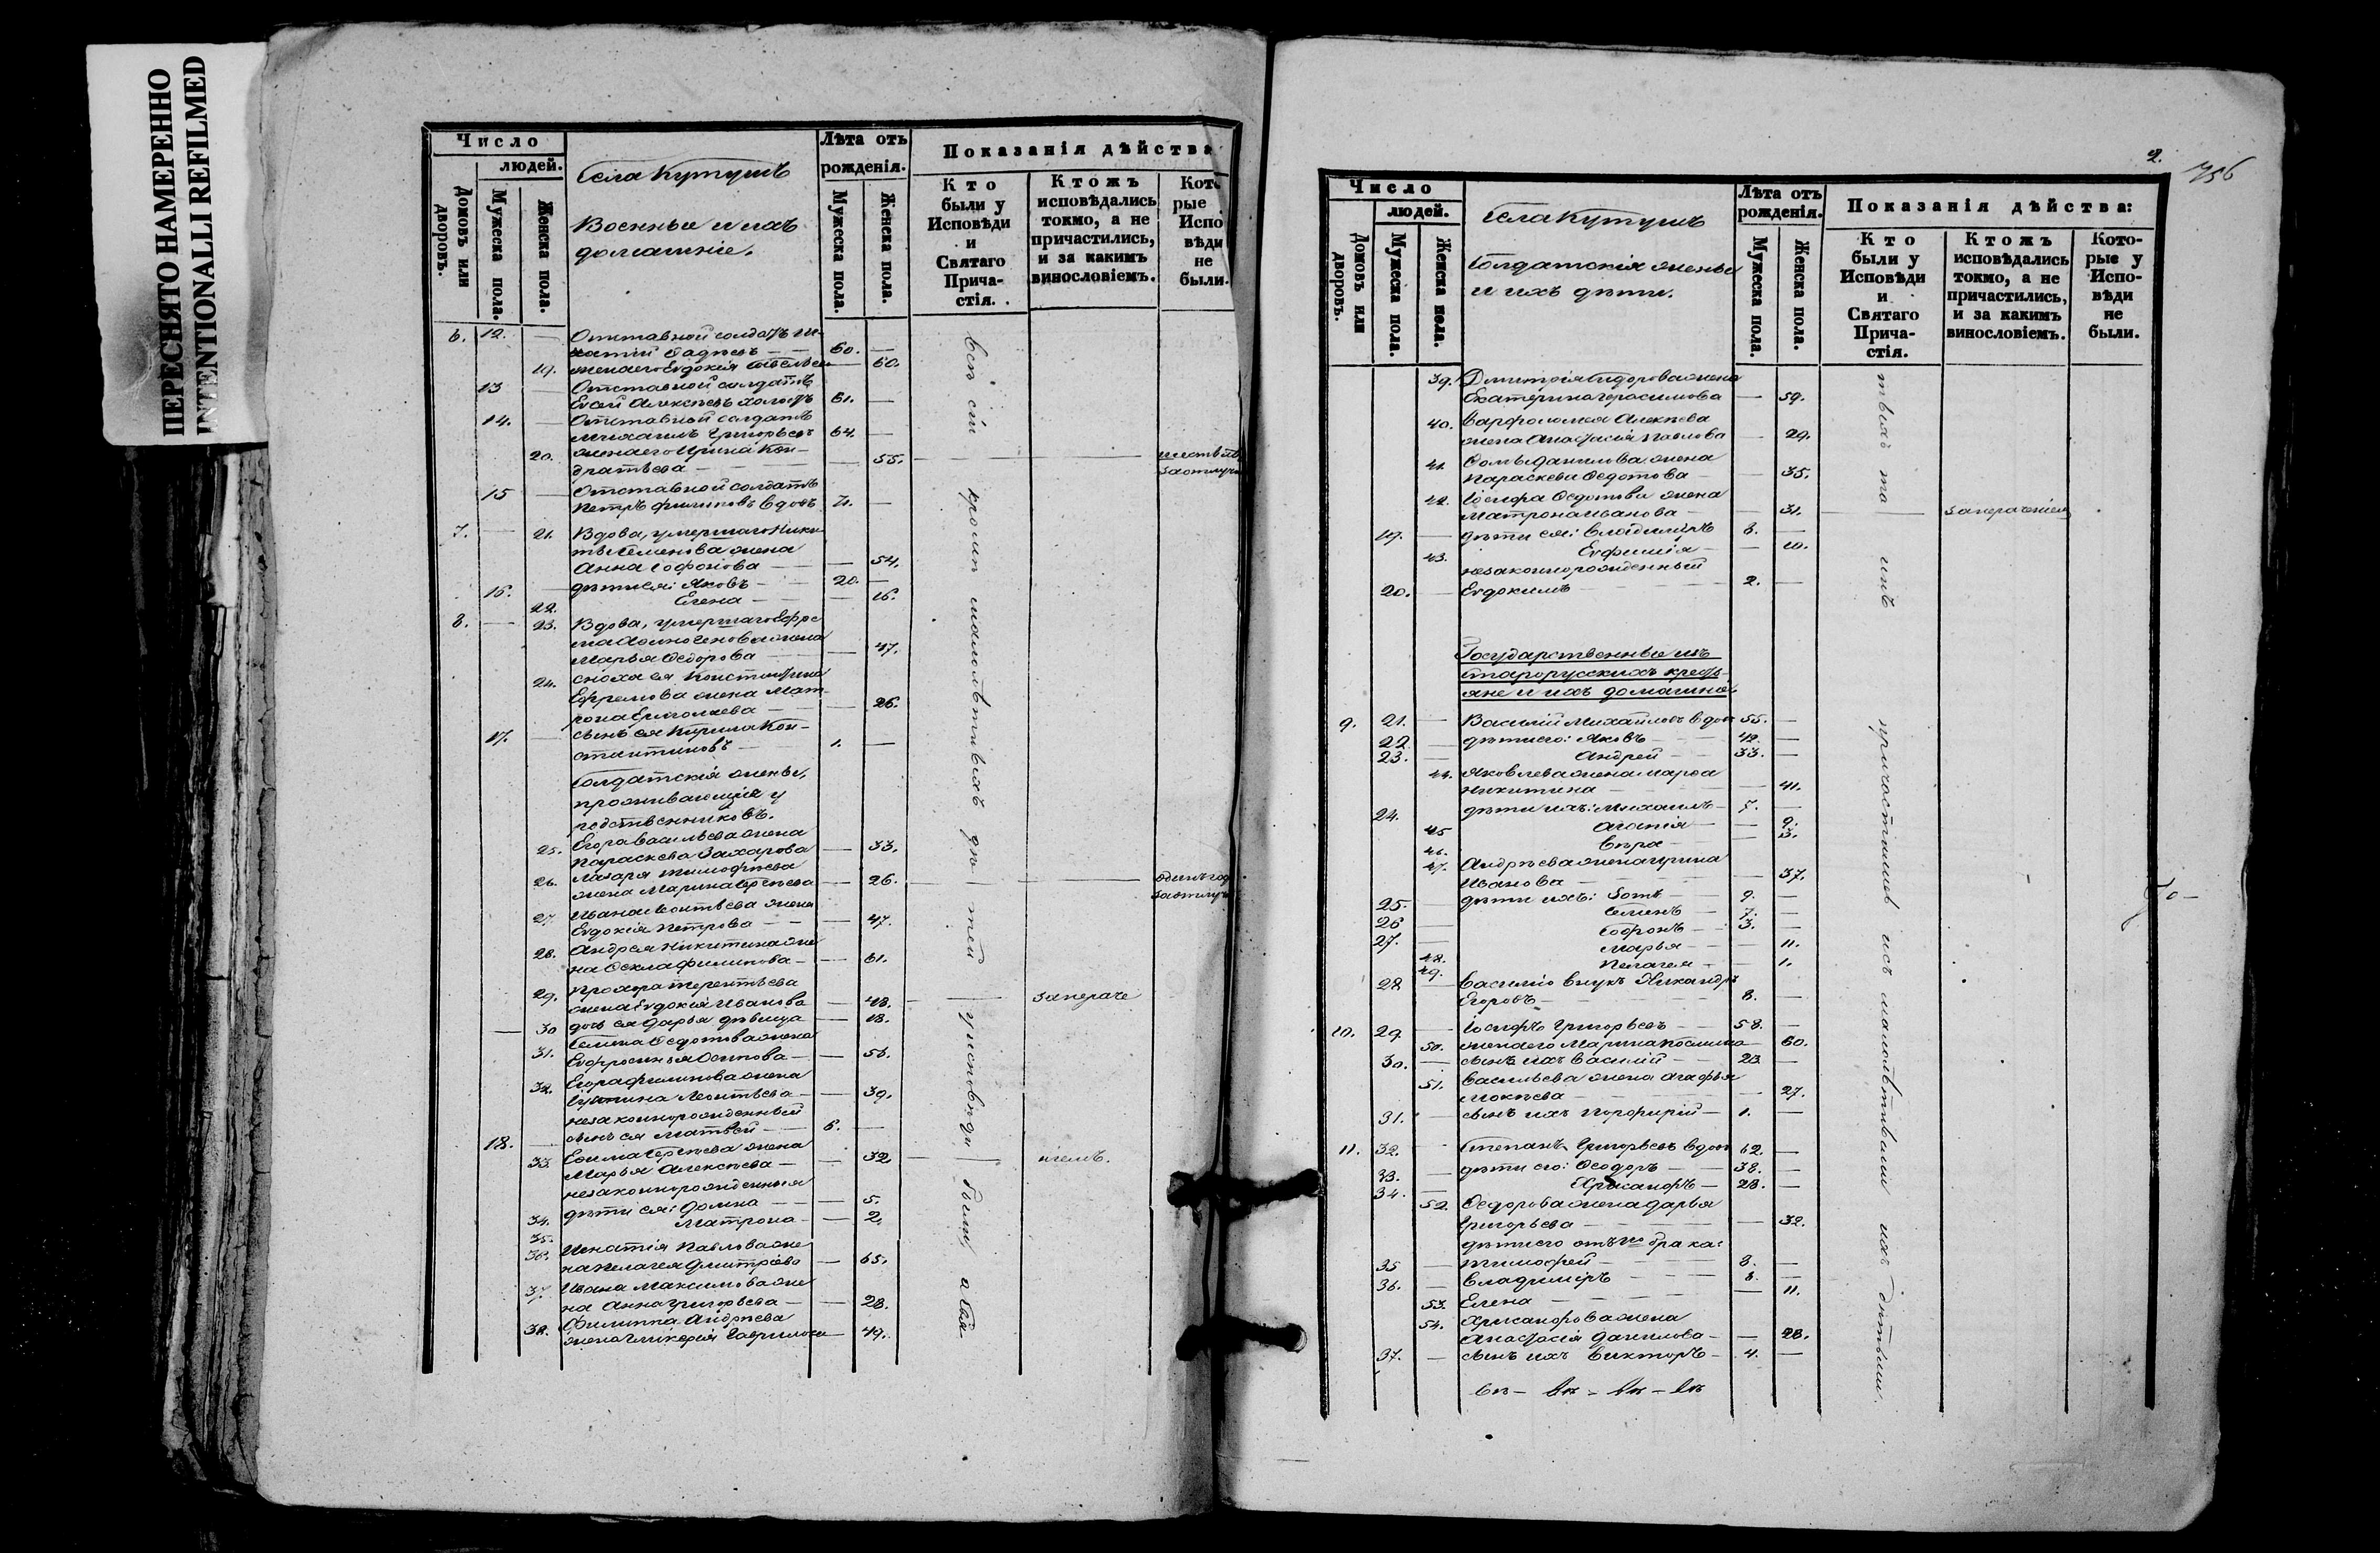 ПЕРЕСНЯТО НАМЕРЕННО
INTENTIONALLI REFILMED
Число
людей.
Домовъ или дворовъ.
Мужеска пола.
Женска пола.
Села Кутушъ
Военные и ихъ
домашніе.
Лѣта отъ
рожденія.
Мужеска пола.
Женска пола.
Показанія дѣйства
Кто
были у
Исповѣди
и
Святаго
Прича-
стія.
Ктожъ
исповѣдались
токмо, а не
причастились,
и за какимъ
винословіемъ.
Кото
рые
Испо
вѣди
не
были.
6. 12. — Отставной солдатъ Иг-
натій — 60. —
19. жена его Евдокія — 60.
13 — Отставной солдатъ
Евсей Алексѣевъ холостъ 61. —
14. — Отставной солдатъ
Михаилъ Григорьевъ 64. —
20. жена его Ирина Кон-
дратьева — 55.
15 — Отставной солдатъ
Петръ Филиповъ вдовъ 71. —
7. — 21. Вдова, умершаго Ники
ты Семенова жена
Анна Софонова — 54.
16. — дѣти ея: Яковъ — 20. —
22. Елена — 16.
8. — 23. Вдова, умершаго Ефре
ма жена
Марья Ѳедорова — 47.
24. сноха ея Константина
Ефремова жена Мат-
рона Ермолаева — 26.
17. — сынъ ея Кирила Кон-
стантиновъ — 1. —
Солдатскія жены,
проживающія у
родственниковъ.
25. Егора Васильева жена
Параскева Захарова — 33.
26. Лазаря Тимофѣева
жена Марина Сергѣева — 26.
одинъ год
за отлуч
27 Ивана Леонтьева жена
Евдокія Петрова — 47.
28. Андрея Никитина же
на Ѳекла Филипова — 61.
29. Прохора Терентьева
жена Евдокія Иванова — 48. — запераче
30 дочь ея Дарья дѣвица — 18.
31. Семена Ѳедотова жена
Евфросинья Осипова — 56.
32. Егора Филипова жена
Іустина Леонтьева — 39.
незаконнорожденный
18. — сынъ ея Матвей — 6. —
33. Ефима Сергѣева жена
Марья Алексѣева — 32 — ніемъ.
незаконнорожденныя
34. дѣти ея: Домна — 5.
35. Матрона — 2.
36. Игнатія Павлова же
на Пелагея Дмитріева — 65.
37. Ивана Максимова же
на Анна Григорьева — 28.
38. Филиппа Андрѣева
жена Гликерія Гаврилова — 49.
всѣ сіи кромѣ малолѣтныхъ дѣтей у исповѣди были а Свя
2.
756
Число
людей.
Домовъ или дворовъ.
Мужеска пола.
Женска пола.
Села Кутушъ
Солдатскія жены
и ихъ дѣти.
Лѣта отъ
рожденія.
Мужеска пола.
Женска пола.
Показанія дѣйства:
Кто
были у
Исповѣди
и
Святаго
Прича-
стія.
Ктожъ
исповѣдались
токмо, а не
причастились,
и за какимъ
винословіемъ.
Кото-
рые у
Испо-
вѣди
не
были.
39. Дмитрія Сидорова жена
Екатерина Герасимова — 59.
40. Варфоломея Алексѣева
жена Анастасія Павлова — 29.
41. Ѳомы Данилова жена
Параскева Ѳедотова — 35.
42. Іосифа Ѳедотова жена
Матрона Иванова — 31. — заперачніемъ
19. — дѣти ея: Владиміръ 8. —
43. Евфимія — 10.
незаконнорожденный
20. — Евдокимъ — 2. —
Государственные изъ
старорусскихъ кресть-
яне и ихъ домашніе
9. 21. — Василій Михайловъ вдов 55. —
22 — дѣти его: Яковъ — 42. —
23. — Андрей — 33. —
44. Яковлева жена Марѳа
Никитина — 41.
24. дѣти ихъ: Михаилъ — 7. —
45 Агапія — 9.
46. Вѣра — 3.
47. Андрѣева жена Ирина
Иванова — 37.
25. — дѣти ихъ: Зотъ — 9. —
26 — Семенъ — 7. —
27. — Софронъ — 3. —
48. Марья — 11.
49. Пелагея — 1.
28 — Василія внукъ Никандръ
Егоровъ — 8. —
10. 29. — Іосифъ Григорьевъ — 58. —
50. жена его Марина Косьмина — 60.
30. — сынъ ихъ Василій — 23 —
51. Васильева жена Агафья
Мокѣева — 27.
31. — сынъ ихъ Порфирій — 1. —
11. 32. — Степанъ Григорьевъ вдов 62. —
33. — дѣти его: Ѳеодоръ — 38. —
34. — Хрисанфъ — 28. —
52. Ѳедорова жена Дарья
Григорьева — 32.
дѣти его отъ 1го брака:
35 — Тимофей — 8. —
36. — Владиміръ — 6. —
53. Елена — 11.
54. Хрисанфова жена
Анастасія Данилова — — 28.
37. — сынъ ихъ Викторъ — 4. —
тыхъ та инъ причастились исъ малолѣтными ихъ дѣтьми.